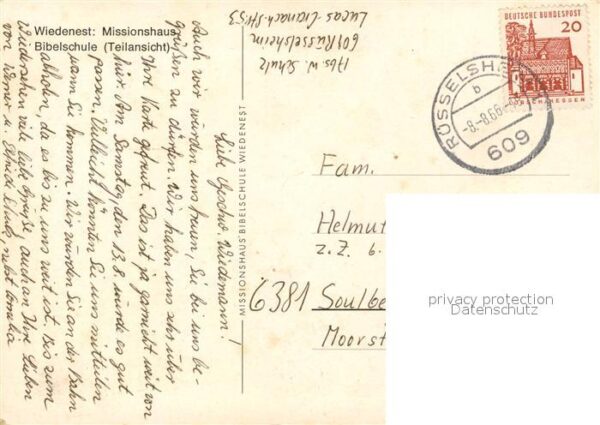 Wiedenest: Missionshaus
Bibelschule (Teilansicht)
Abs. W. Schulz
609 Rüsselsheim
Lucas-Cranach-Str. 53
DEUTSCHE BUNDESPOST
20
LORSCH HESSEN
RÜSSELSHEIM
b
-8.-8.66
609
MISSIONSHAUS BIBELSCHULE WIEDENEST
Liebe Geschw. Wiedmann!
Auch wir würden uns freuen, Sie bei uns be-
grüßen zu dürfen. Wir haben uns sehr über
Ihre Karte gefreut. Das ist ja garnicht weit von
hier. Am Samstag, den 13.8. würde es gut
passen. Vielleicht könnten Sie uns mitteilen
wann Sie kommen. Wir würden Sie an der Bahn
abholen, da es bis zu uns weit ist. Bis zum
Wiedersehen viele liebe Grüße, auch an Ihre Lieben
von Werner u. Elfriede Schulz, nebst
Fam.
Helmut
z.Z. b.
6381 Soulbe
Moorst
privacy protection
Datenschutz